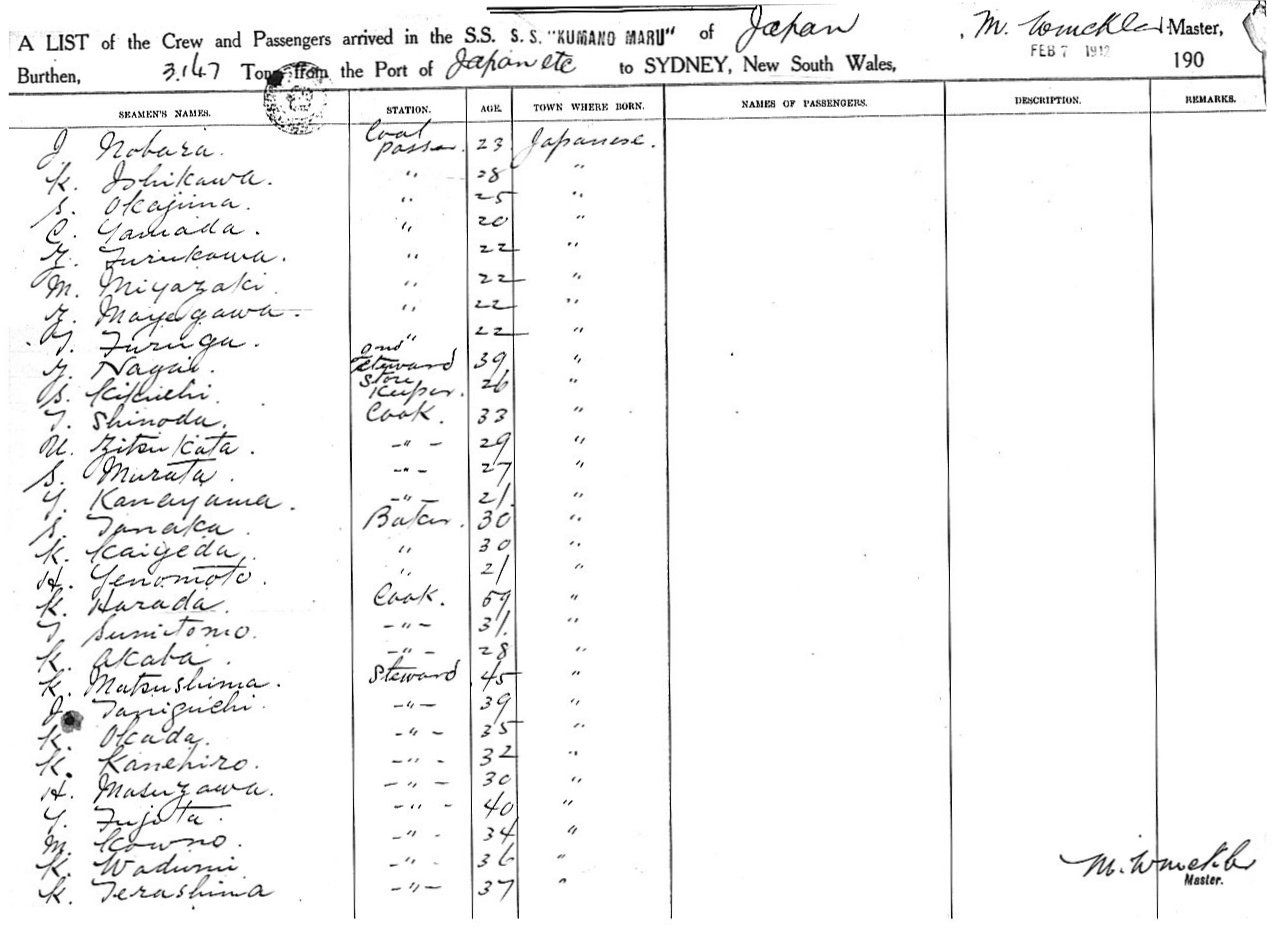 A LIST of the Crew and Passengers arrived in the S.S. S.S. "KUMANO MARU" of Japan M. Winckler Master,
FEB 7 1912
Burthen, 3,147 Tons from the Port of Japan etc to SYDNEY, New South Wales, 190
SEAMEN'S NAMES. STATION. AGE. TOWN WHERE BORN. NAMES OF PASSENGERS. DESCRIPTION. REMARKS.
J. Nobara. Coal Passer. 23 Japanese.
K. Ishikawa. " 28 "
S. Okajima. " 25 "
C. Yamada. " 20 "
Furukawa. " 22 "
M. Miyazaki. " 22 "
Mayegawa. " 22 "
T. Furuga. " 22 "
Nagai. 2nd Steward 39 "
S. Kikuchi. Store Keeper. 26 "
T. Shinoda. Cook. 33 "
-"- 29 "
S. Murata. -"- 27 "
Y. Kanayama. -"- 21. "
S. Tanaka. Baker. 30 "
K. Kaiyeda. " 30 "
H. Yenomoto. " 21 "
K. Harada. Cook. 59 "
T. Sumitomo. -"- 31. "
K. Akaba. -"- 28 "
K. Matsushima. Steward 45 "
J. Taniguchi. -"- 39 "
K. Okada. -"- 35 "
K. Kanehiro. -"- 32 "
H. Masuzawa. -"- 30 "
Y. Fujita. -"- 40 "
M. Kowno. -"- 34 "
K. Wadumi -"- 36 "
K. Terashima -"- 37 "
M. Winckler
Master.